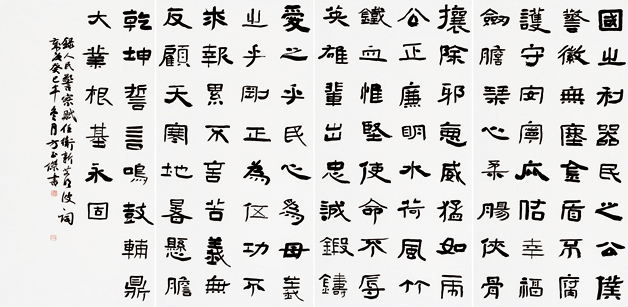 國之利器民之公僕
警徽無塵金盾不腐
護守安寧佑幸福
劍膽琴心柔腸俠骨
攘除邪惡威猛如雨
公正廉明水荷風竹
鐵血惟堅使命不辱
英雄輩出忠誠鍛鑄
愛之乎民心為母義
之乎剛正為伍功不
求報累不言苦義無
反顧天寒地暑懸膽
乾坤誓言鳴鼓輔鼎
大業根基永固
錄人民警察賦任衛新詞
癸巳年冬月方書